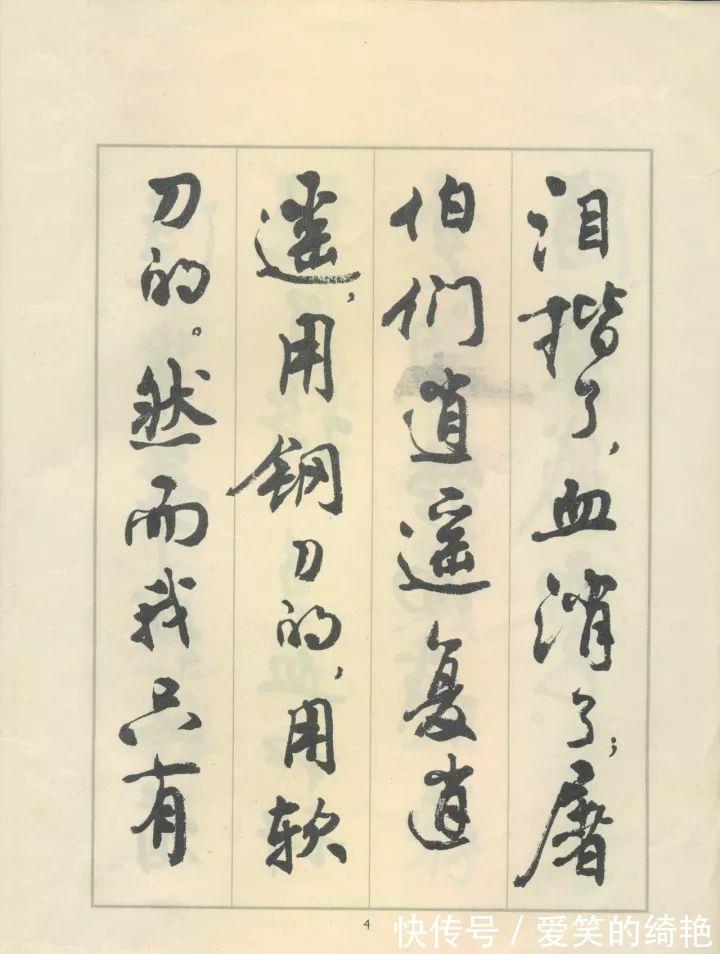 泪揩了，血消了；屠
伯们逍遥复逍
遥，用钢刀的，用软
刀的。然而我只有
4
快传号 / 爱笑的绮艳